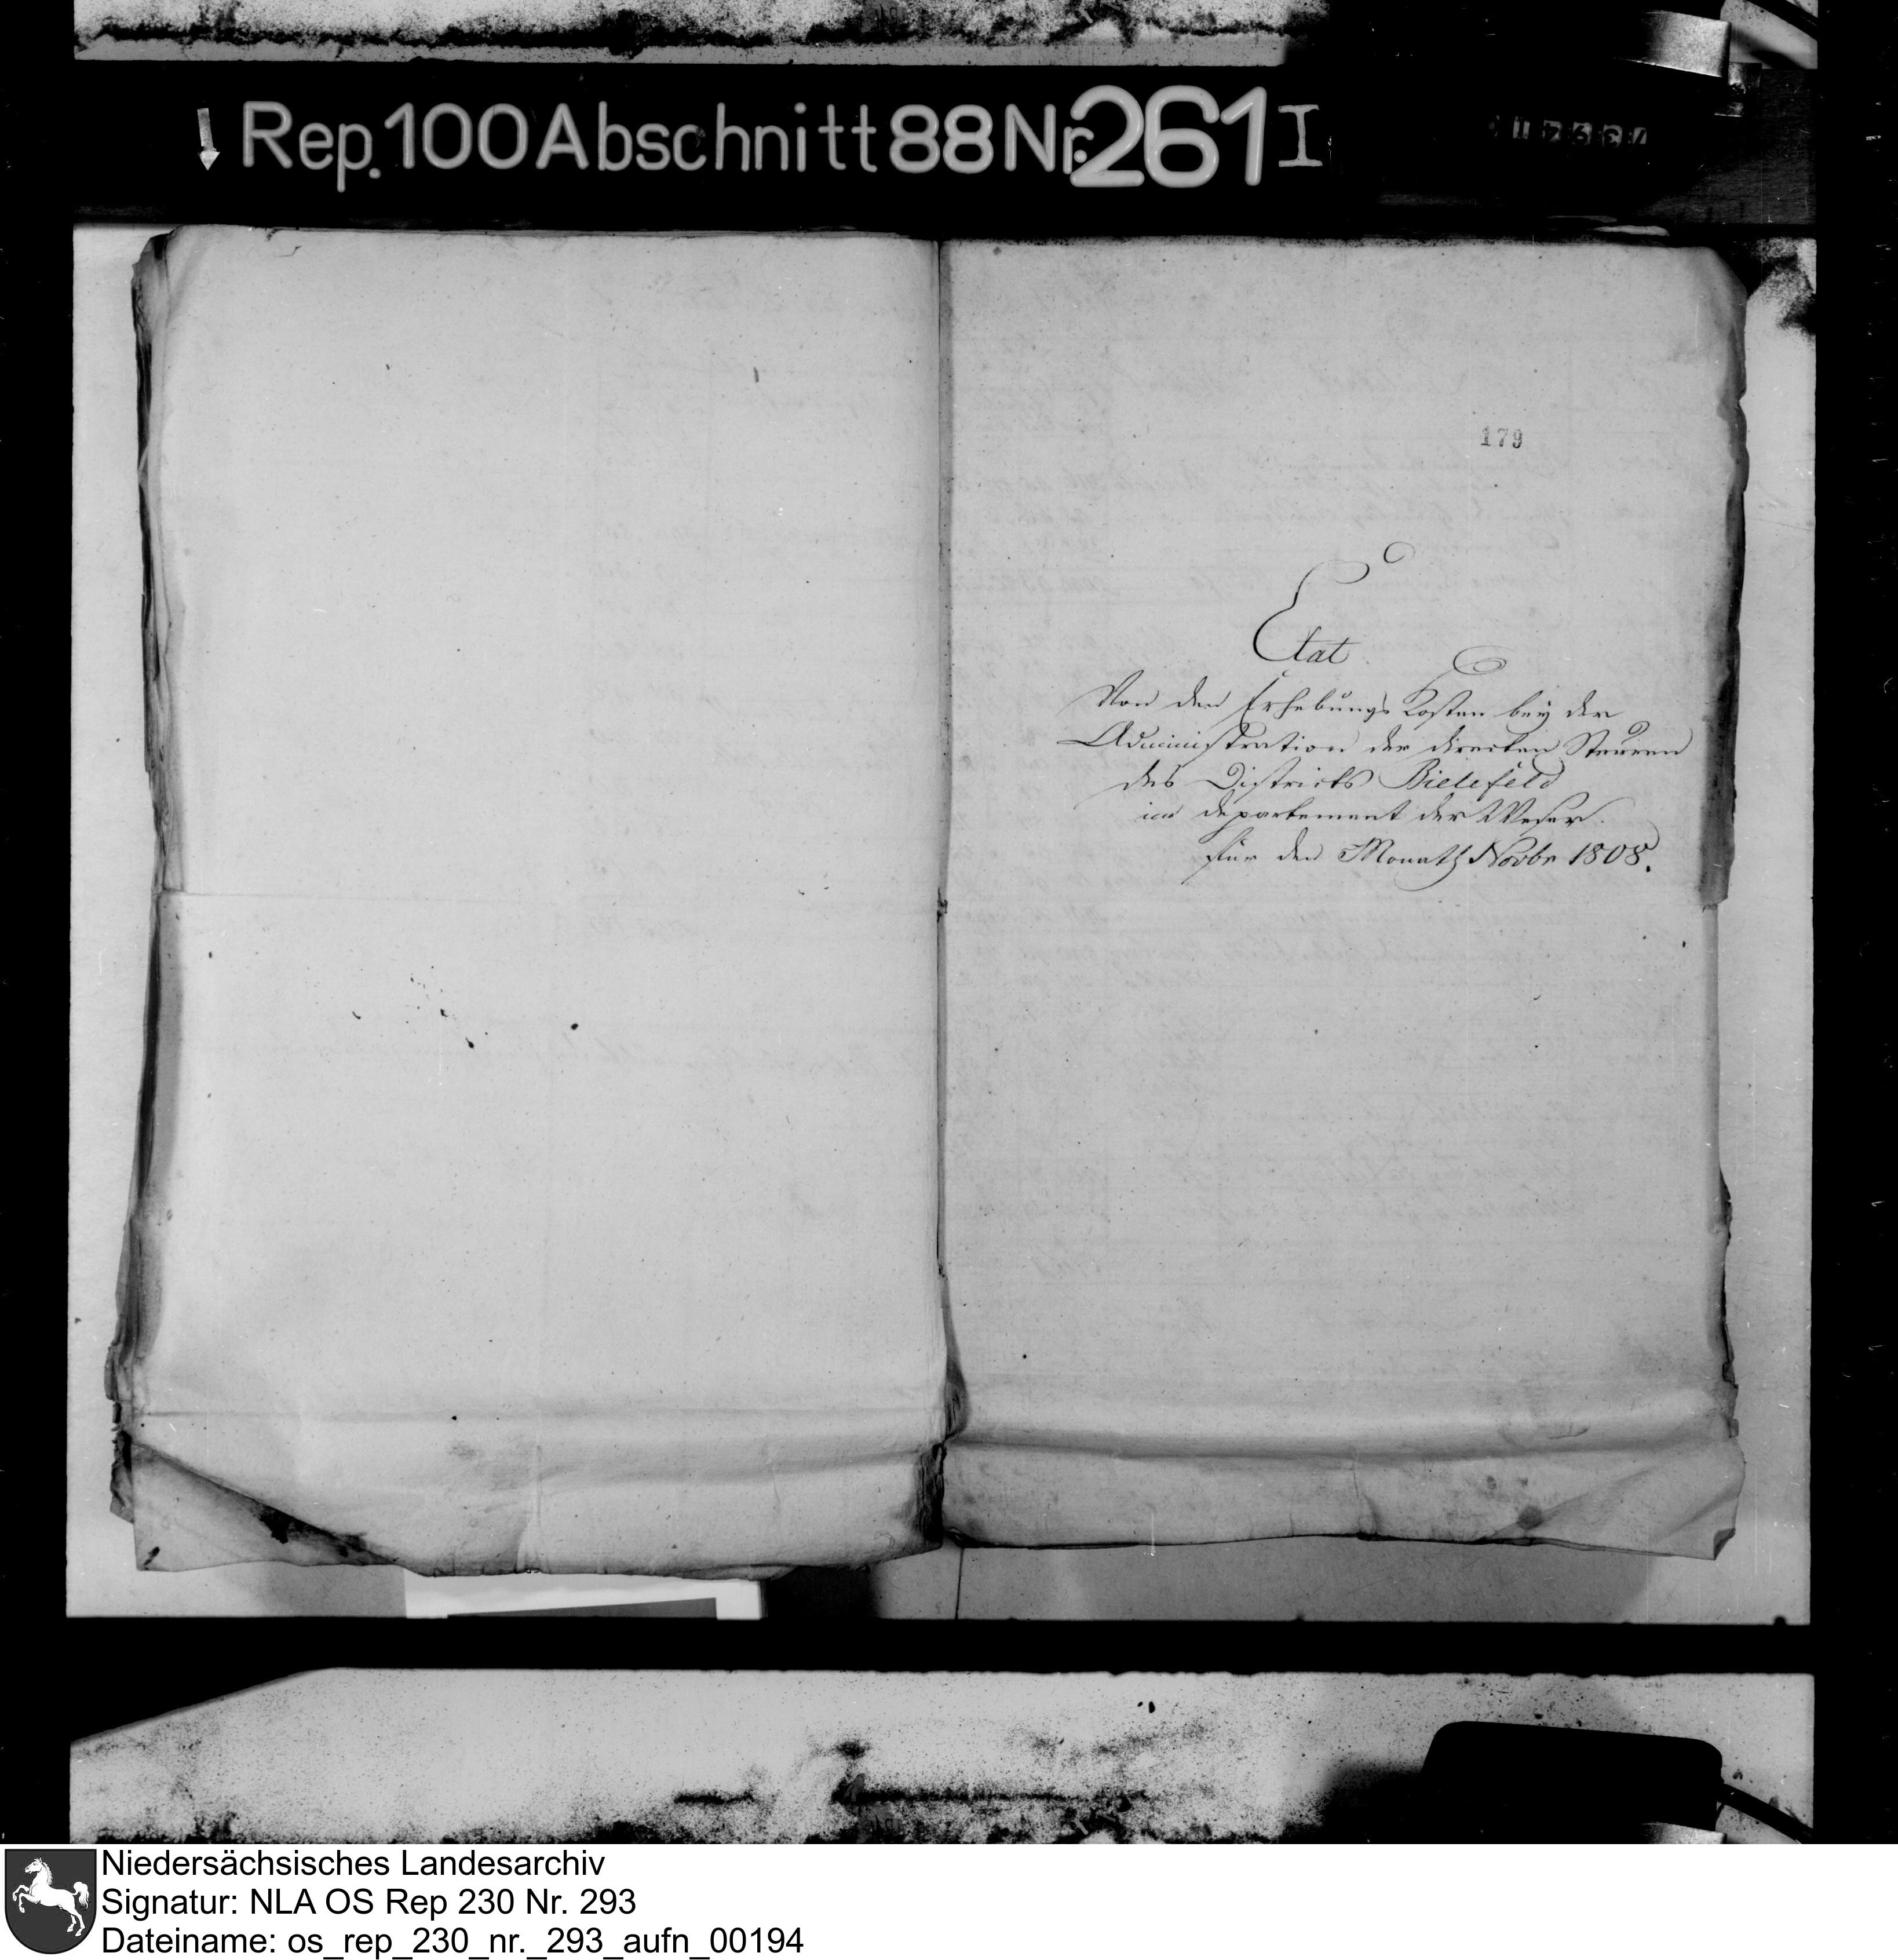 Rep. 100 Abschnitt 88 Nr. 261 I
179
Etat
Von den Erhebungs Kosten bey der
Administration der directen Steuren
des Districts Bielefeld
im departement der Weser.
für den Monath Novbr 1808.
Niedersächsisches Landesarchiv
Signatur: NLA OS Rep 230 Nr. 293
Dateiname: os_rep_230_nr._293_aufn_00194